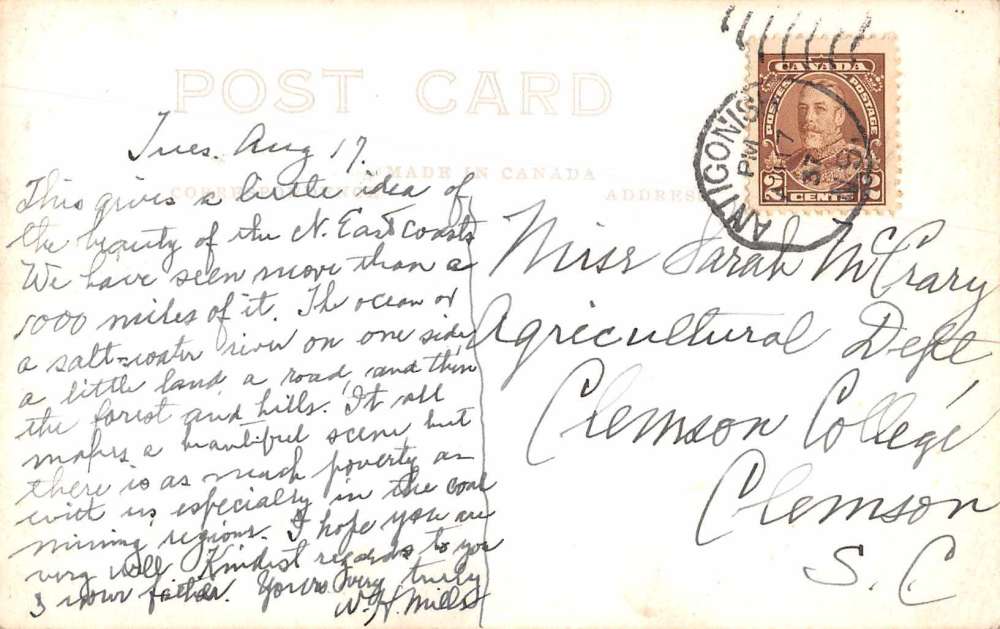 POST CARD
MADE IN CANADA
CORRESPONDENCE
ADDRESS
CANADA
POSTES POSTAGE
2 CENTS 2
ANTIGONISH
PM
17
37
N.S.
Tues. Aug 17.
This gives a little idea of
the beauty of the N. East coasts
We have seen more than a
1000 miles of it. The ocean or
a salt-water river on one side,
a little land, a road, and then
the forest and hills. It all
makes a beautiful scene but
there is as much poverty as
with us especially in the coal
mining regions. I hope you are
very well. Kindest regards to you
& your father. Yours very truly
W. H. Mills
Miss Sarah McCrary
Agricultural Dept
Clemson College
Clemson
S. C